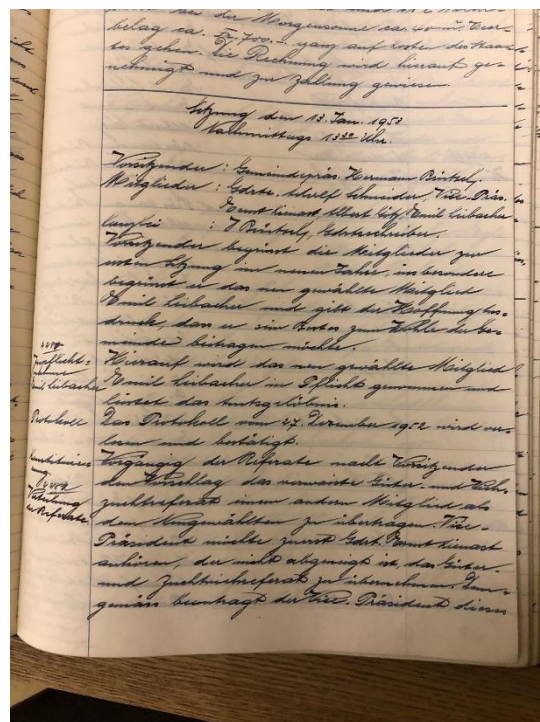 bei der Morgensonne ca. 40 m².
belag ca. Fr. 700.– ganz auf Kosten des Staa-
tes gehen. Die Rechnung wird hierauf ge-
nehmigt und zur Zahlung gewiesen.
Sitzung den 13. Jan. 1953
Nachmittags 13³⁰ Uhr.
Vorsitzender : Gemeindepräs. Hermann
Mitglieder : Gdrte. Adolf Schneider, Vice-Präs.
Ernst Albert Emil Leibacher
Kanzlei : J. Gdratschreiber.
Vorsitzender begrüsst die Mitglieder zur
ersten Sitzung im neuen Jahre, insbesondere
begrüsst er das neu gewählte Mitglied
Emil Leibacher und gibt der Hoffnung Aus-
druck, dass er sein Bestes zum Wohle der Ge-
meinde beitragen möchte.
Inpflicht-
nahme
Emil Leibacher
Hierauf wird das neu gewählte Mitglied
Emil Leibacher in Pflicht genommen und
leistet das Amtsgelübnis.
Protokoll
Das Protokoll vom 27. Dezember 1952 wird ver-
lesen und bestätigt.
Konstituier-
ung
Verteilung
der Referate.
Vorgängig der Referate macht Vorsitzender
den Vorschlag das vereinte Güter- und
referat einem andern Mitglied als
dem Neugewählten zu übertragen. Vice-
Präsident möchte zuerst Gdrt. Ernst
anhören, der nicht abgeneigt ist, das Güter-
und zu übernehmen. Dem-
gemäss beantragt der Vice-Präsident dieses